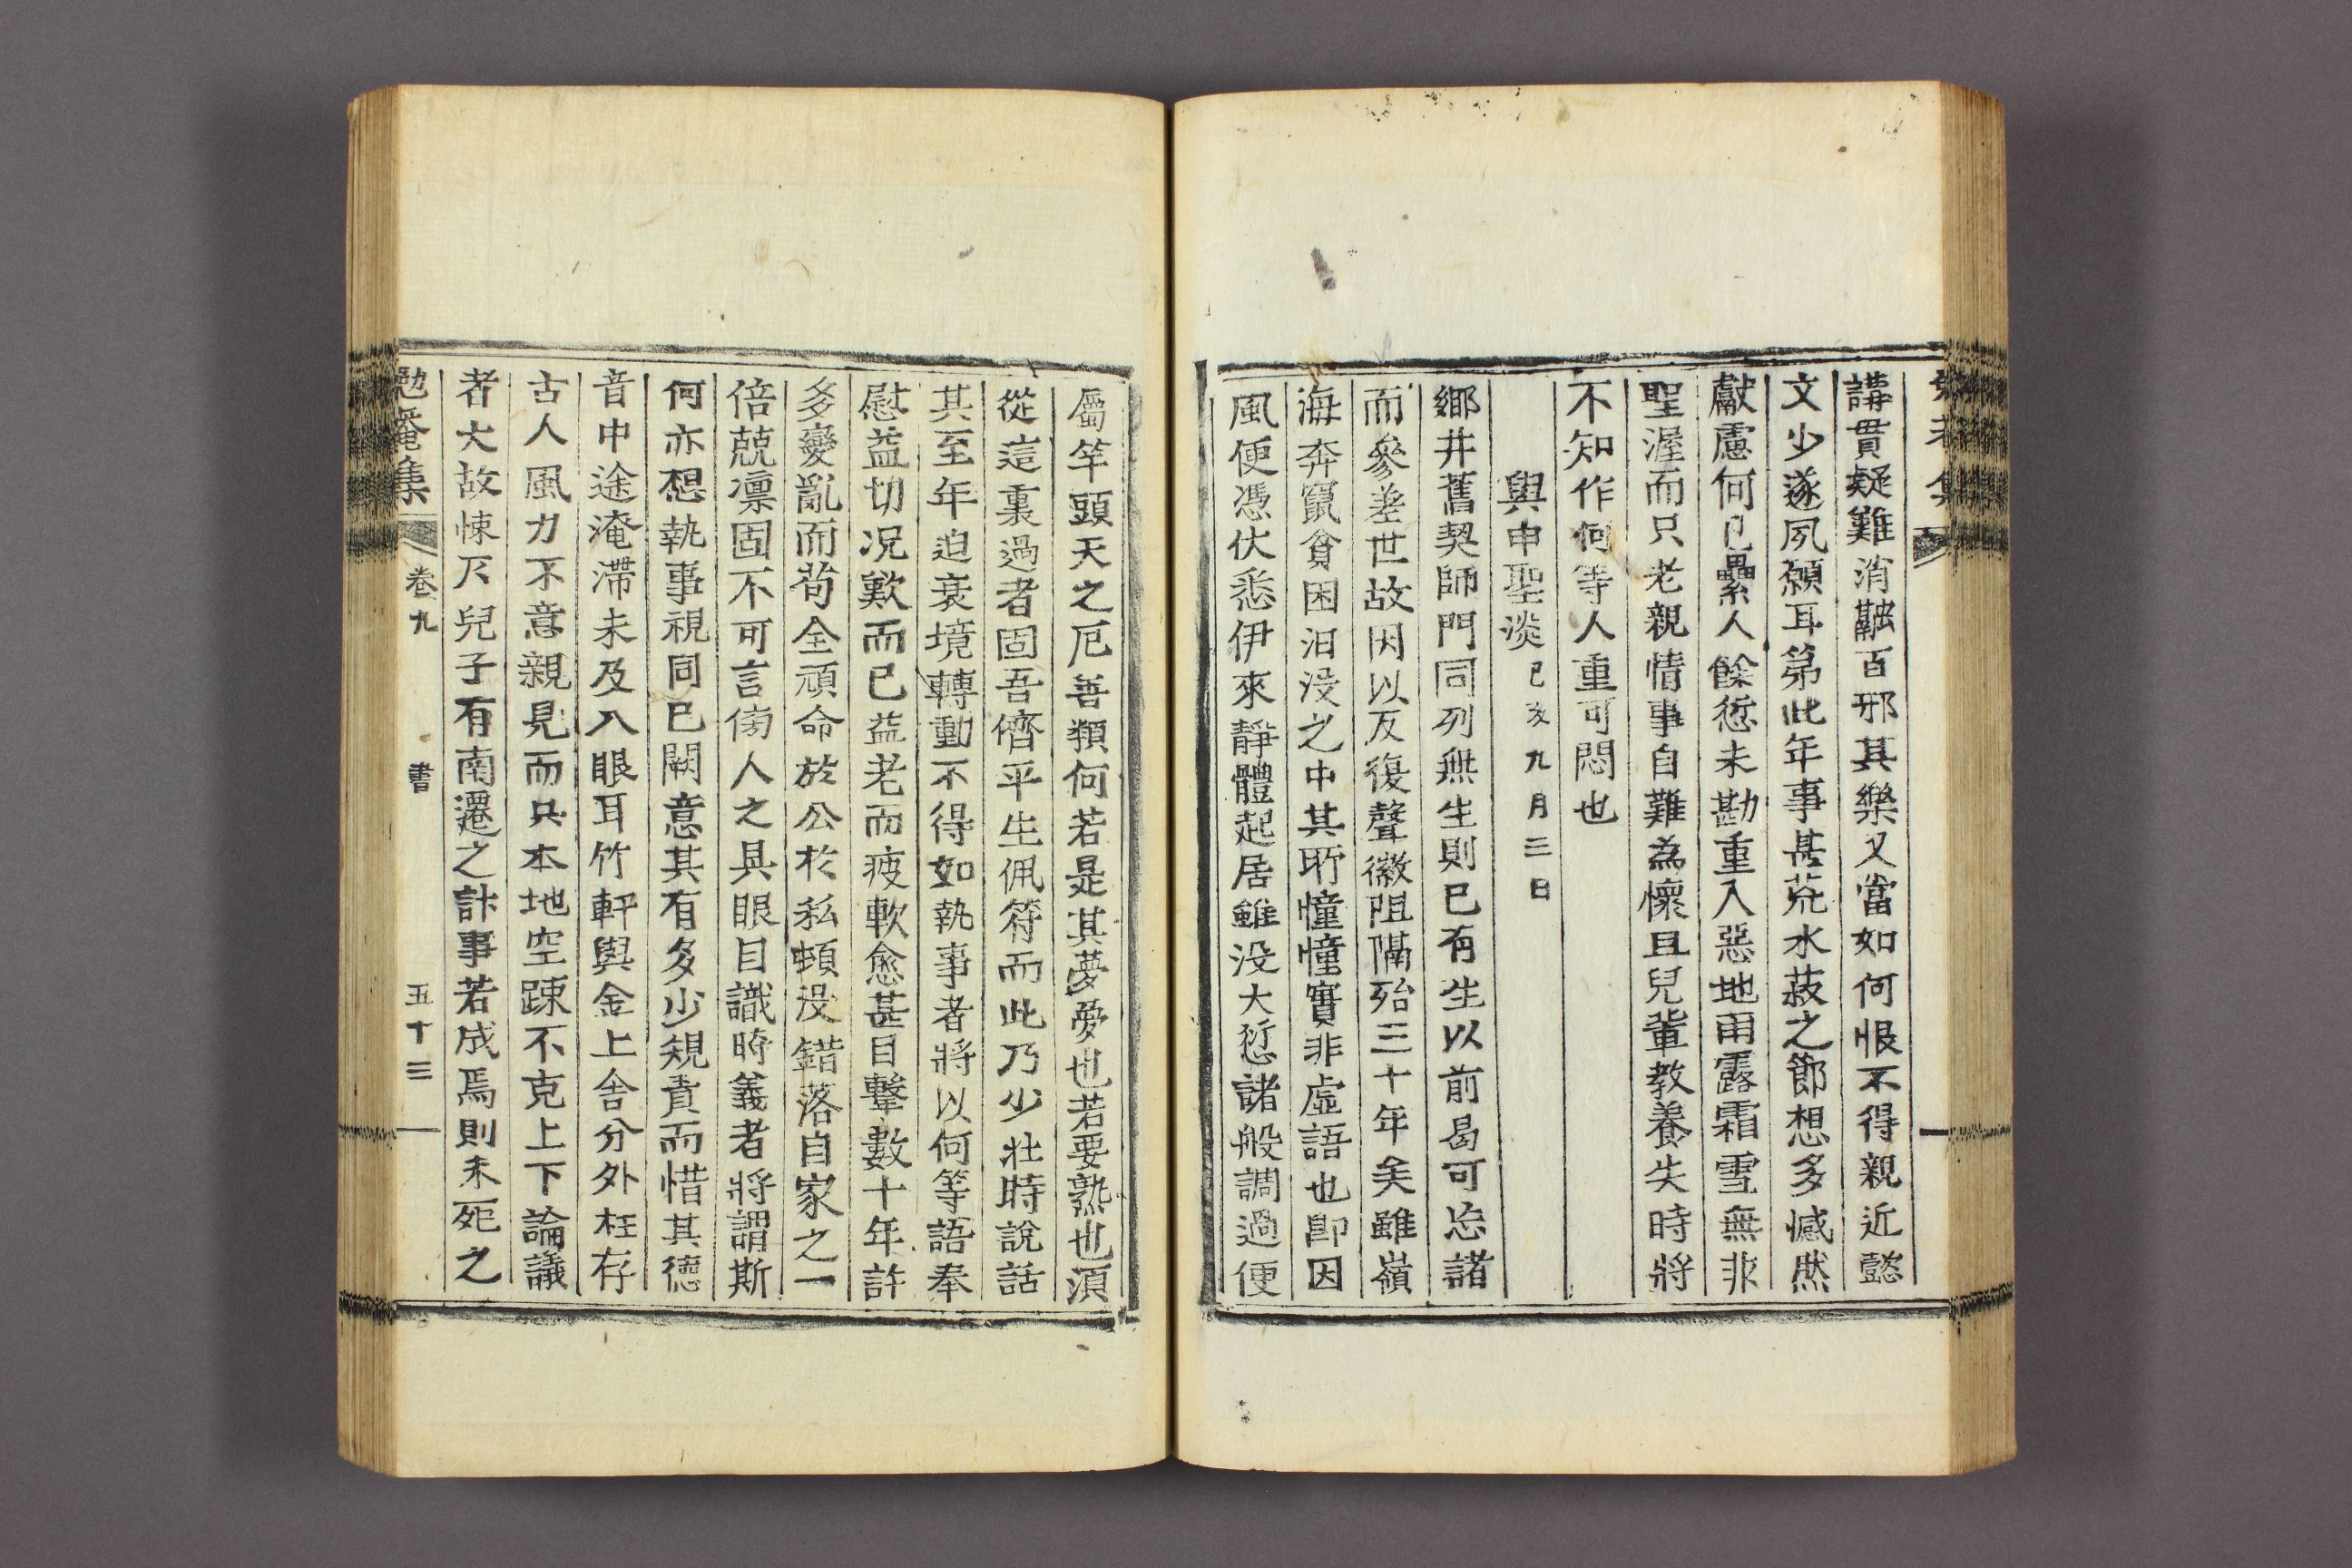 講貫疑難消融百邪其樂又當如何恨不得親近懿
文少遂夙願耳第此年事甚荒水菽之節想多慽然
獻慮何已纍人餘愆未勘重入惡地雨露霜雪無非
聖渥而只老親情事自難為懷且兒輩教養失時將
不知作何等人重可悶也
與申聖淡 己亥九月三日
鄉井舊契師門同列無生則已有生以前曷可忘諸
而參差世故因以反復聲徽阻隔殆三十年矣雖嶺
海奔竄貧困汨沒之中其所憧憧實非虛語也卽因
風便憑伏悉伊來靜體起居雖沒大愆諸般調過便
屬竿頭天之厄善類何若是其夢夢也若要熟也須
從這裏過者固吾儕平生佩符而此乃少壯時說話
其至年迫衰境轉動不得如執事者將以何等語奉
慰益切况歎而已益老而疲軟愈甚目擊數十年許
多變亂而苟全頑命於公於私頓沒錯落自家之一
倍兢凛固不可言傍人之具眼目識時義者將謂斯
何亦想執事視同已闕意其有多少規責而惜其德
音中途淹滯未及入眼耳竹軒與金上舍分外枉存
古人風力不意親見而只本地空踈不克上下論議
者大故悚仄兒子有南遷之計事若成焉則未死之
勉菴集 卷九 書 五十三